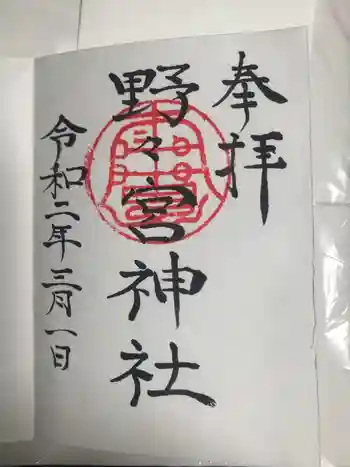 奉拝
野々宮神社
令和二年三月一日